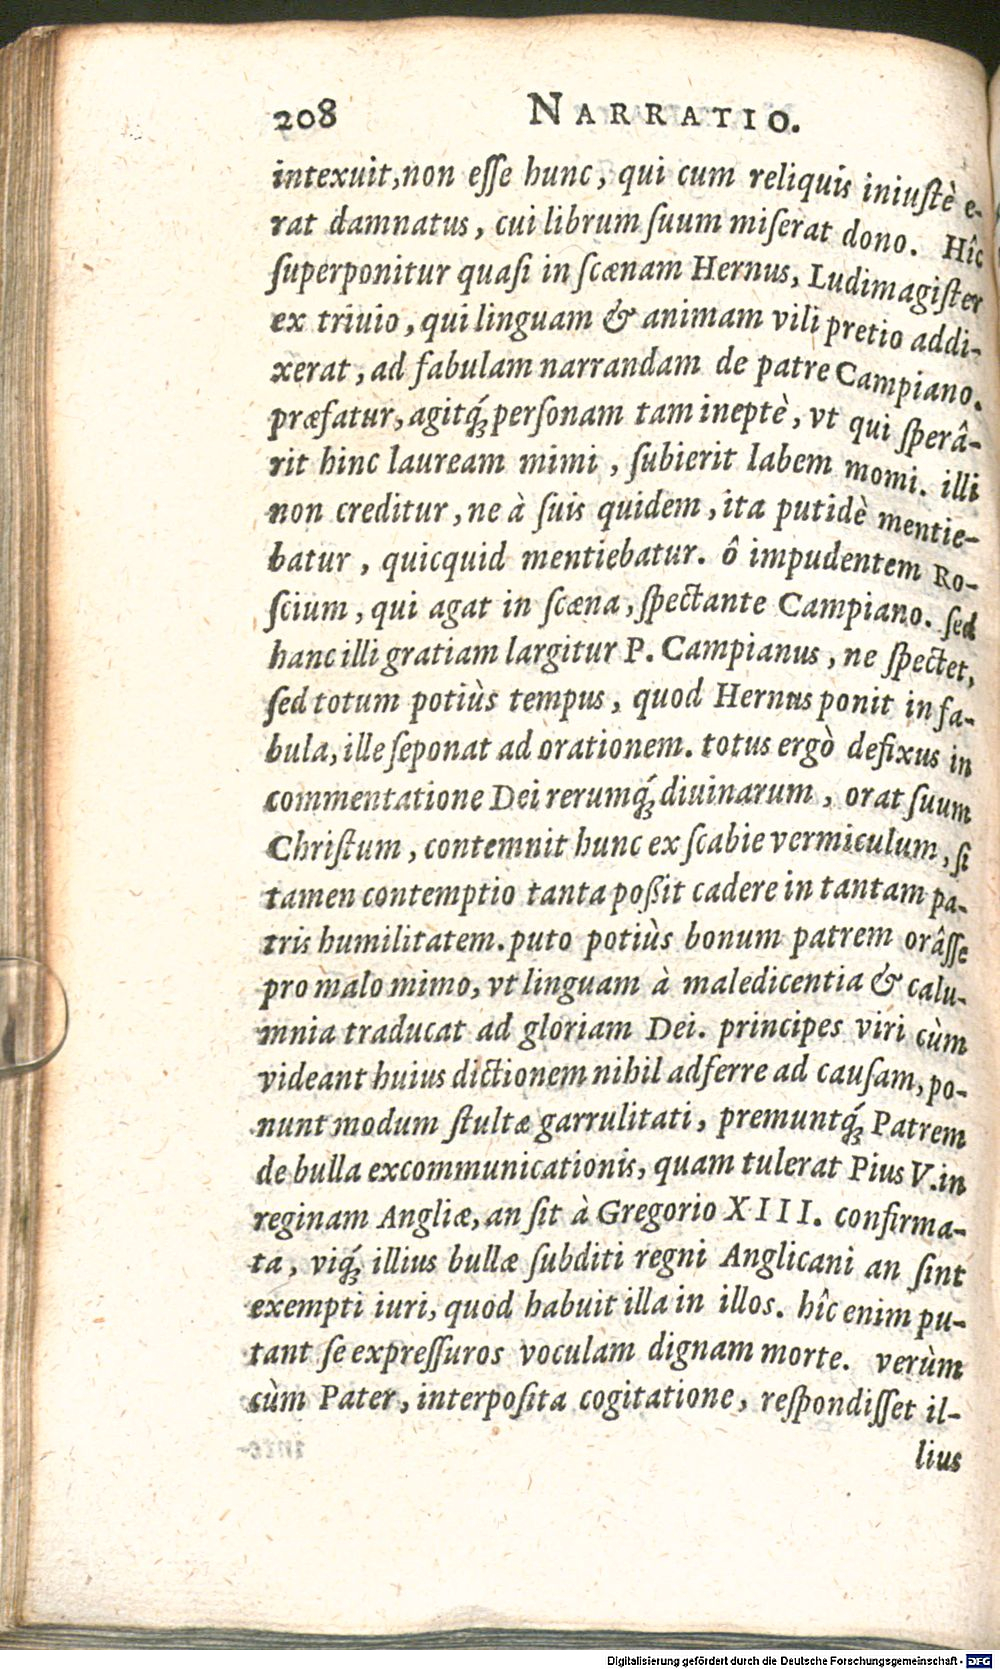 208 NARRATIO.
intexuit, non eſſe hunc, qui cum reliquis iniuſtè e-
rat damnatus, cui librum ſuum miſerat dono. Hîc
ſuperponitur quaſi in ſcænam Hernus, Ludimagiſter
ex triuio, qui linguam & animam vili pretio addi-
xerat, ad fabulam narrandam de patre Campiano.
præfatur, agitq́ꝫ perſonam tam ineptè, vt qui ſperâ-
rit hinc lauream mimi, ſubierit labem momi. illi
non creditur, ne à ſuis quidem, ita putidè mentie-
batur, quicquid mentiebatur. ô impudentem Ro-
ſcium, qui agat in ſcæna, ſpectante Campiano. ſed
hanc illi gratiam largitur P. Campianus, ne ſpectet,
ſed totum potiùs tempus, quod Hernus ponit in fa-
bula, ille ſeponat ad orationem. totus ergò defixus in
commentatione Dei rerumq́ꝫ diuinarum, orat ſuum
Chriſtum, contemnit hunc ex ſcabie vermiculum, ſi
tamen contemptio tanta poßit cadere in tantam pa-
tris humilitatem. puto potiùs bonum patrem orâſſe
pro malo mimo, vt linguam à maledicentia & calu-
mnia traducat ad gloriam Dei. principes viri cùm
videant huius dictionem nihil adferre ad cauſam, po-
nunt modum ſtultæ garrulitati, premuntq́ꝫ Patrem
de bulla excommunicationis, quam tulerat Pius V. in
reginam Angliæ, an ſit à Gregorio XIII. confirma-
ta, viq́ꝫ illius bullæ ſubditi regni Anglicani an ſint
exempti iuri, quod habuit illa in illos. hîc enim pu-
tant ſe expreſſuros voculam dignam morte. verùm
cùm Pater, interpoſita cogitatione, reſpondiſſet il-
lius
Digitalisierung gefördert durch die Deutsche Forschungsgemeinschaft - DFG